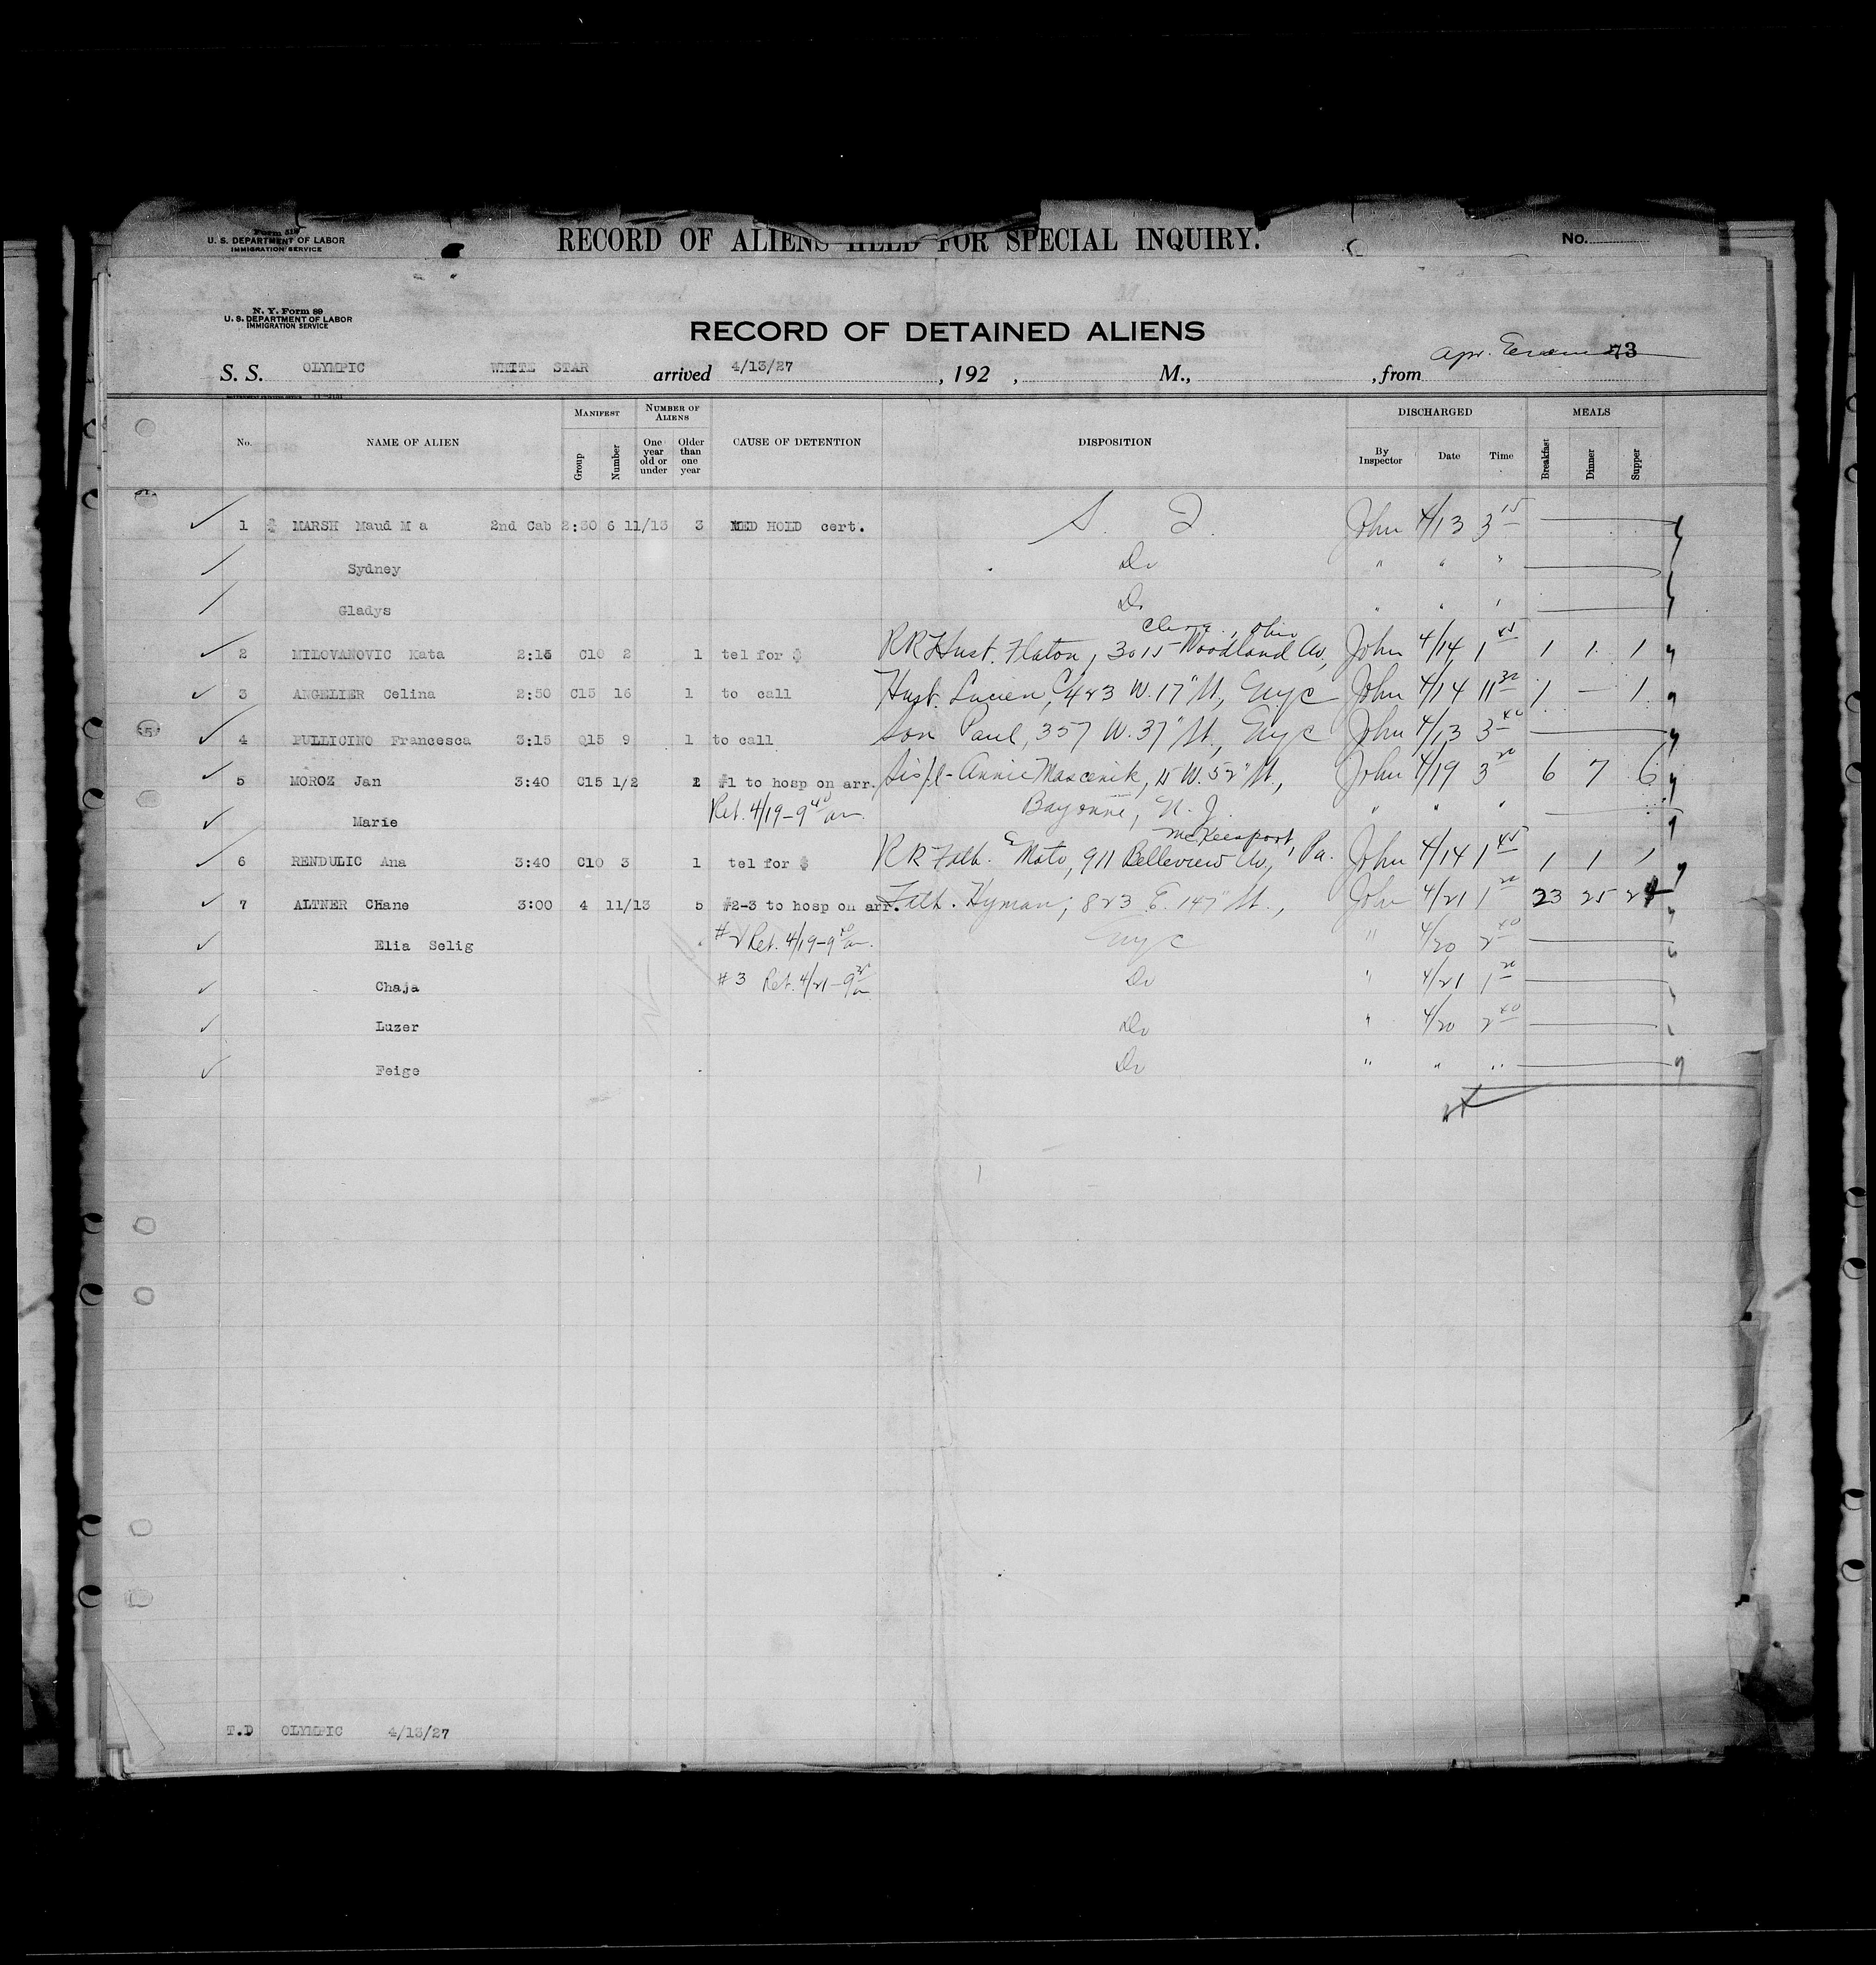 Form 519
U. S. DEPARTMENT OF LABOR
IMMIGRATION SERVICE
RECORD OF ALIENS HELD FOR SPECIAL INQUIRY.
No.
N. Y. Form 89
U. S. DEPARTMENT OF LABOR
IMMIGRATION SERVICE
RECORD OF DETAINED ALIENS
S. S. OLYMPIC WHITE STAR arrived 4/13/27, 192 , M., , from
MANIFEST NUMBER OF ALIENS DISCHARGED MEALS
No. NAME OF ALIEN Group Number One year old or under Older than one year CAUSE OF DETENTION DISPOSITION By Inspector Date Time Breakfast Dinner Supper
1 MARSH Maud M a 2nd Cab 2:30 6 11/13 3 MED HOLD cert. S. I. John 4/13 3 15
Sydney Do " " "
Gladys Do " " "
2 MILOVANOVIC Kata 2:15 C10 2 1 tel for $ RR Husb. Flaton, 3015 Woodland Av, Cleve., Ohio John 4/14 1 45 1 1 1
3 ANGELIER Celina 2:50 C15 16 1 to call Husb. Lucien, 423 W. 17" St., NYC John 4/14 11 30 1 — 1
4 PULLICINO Francesca 3:15 Q15 9 1 to call Son Paul, 357 W. 37" St., NYC John 4/13 3 40
5 MOROZ Jan 3:40 C15 1/2 2 #1 to hosp on arr. Annie Mascenik, 15 W. 52" St., John 4/19 3 20 6 7 6
Marie Ret. 4/19-9 40 am. Bayonne, N. J. " " "
6 RENDULIC Ana 3:40 C10 3 1 tel for $ RR Fath. Mato, 911 Belleview Av, McKeesport, Pa. John 4/14 1 45 1 1 1
7 ALTNER CHane 3:00 4 11/13 5 #2-3 to hosp on arr. Fath. Hyman, 823 E. 147" St., John 4/21 1 20 23 25 24
Elia Selig #2 Ret. 4/19-9 40 am. NYC " 4/20 2 40
Chaja #3 Ret. 4/21-9 30 am Do " 4/21 1 20
Luzer Do " 4/20 2 40
Feige Do " " "
T.D OLYMPIC 4/13/27